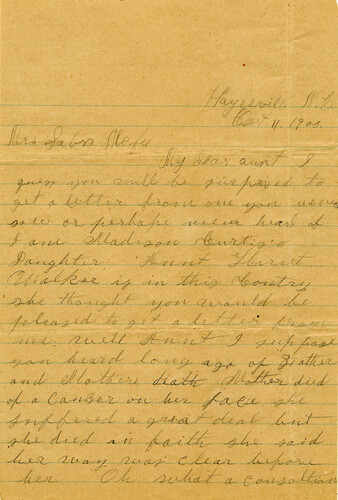 Hayesville N.C.
Oct 11, 1900
Mrs Sabra
My dear aunt I
guess you will be surprised to
get a letter from one you never
saw or perhaps never heard of
I am Madison Curtis's
Daughter. Aunt
Walker is in this Contry
she thought you would be
pleased to get a letter from
me. well Aunt I suppose
you heard long ago of Father
and Mothers death Mother died
of a Cancer on her face she
suffered a great deal but
she died in faith she said
her way was clear before
her. Oh what a